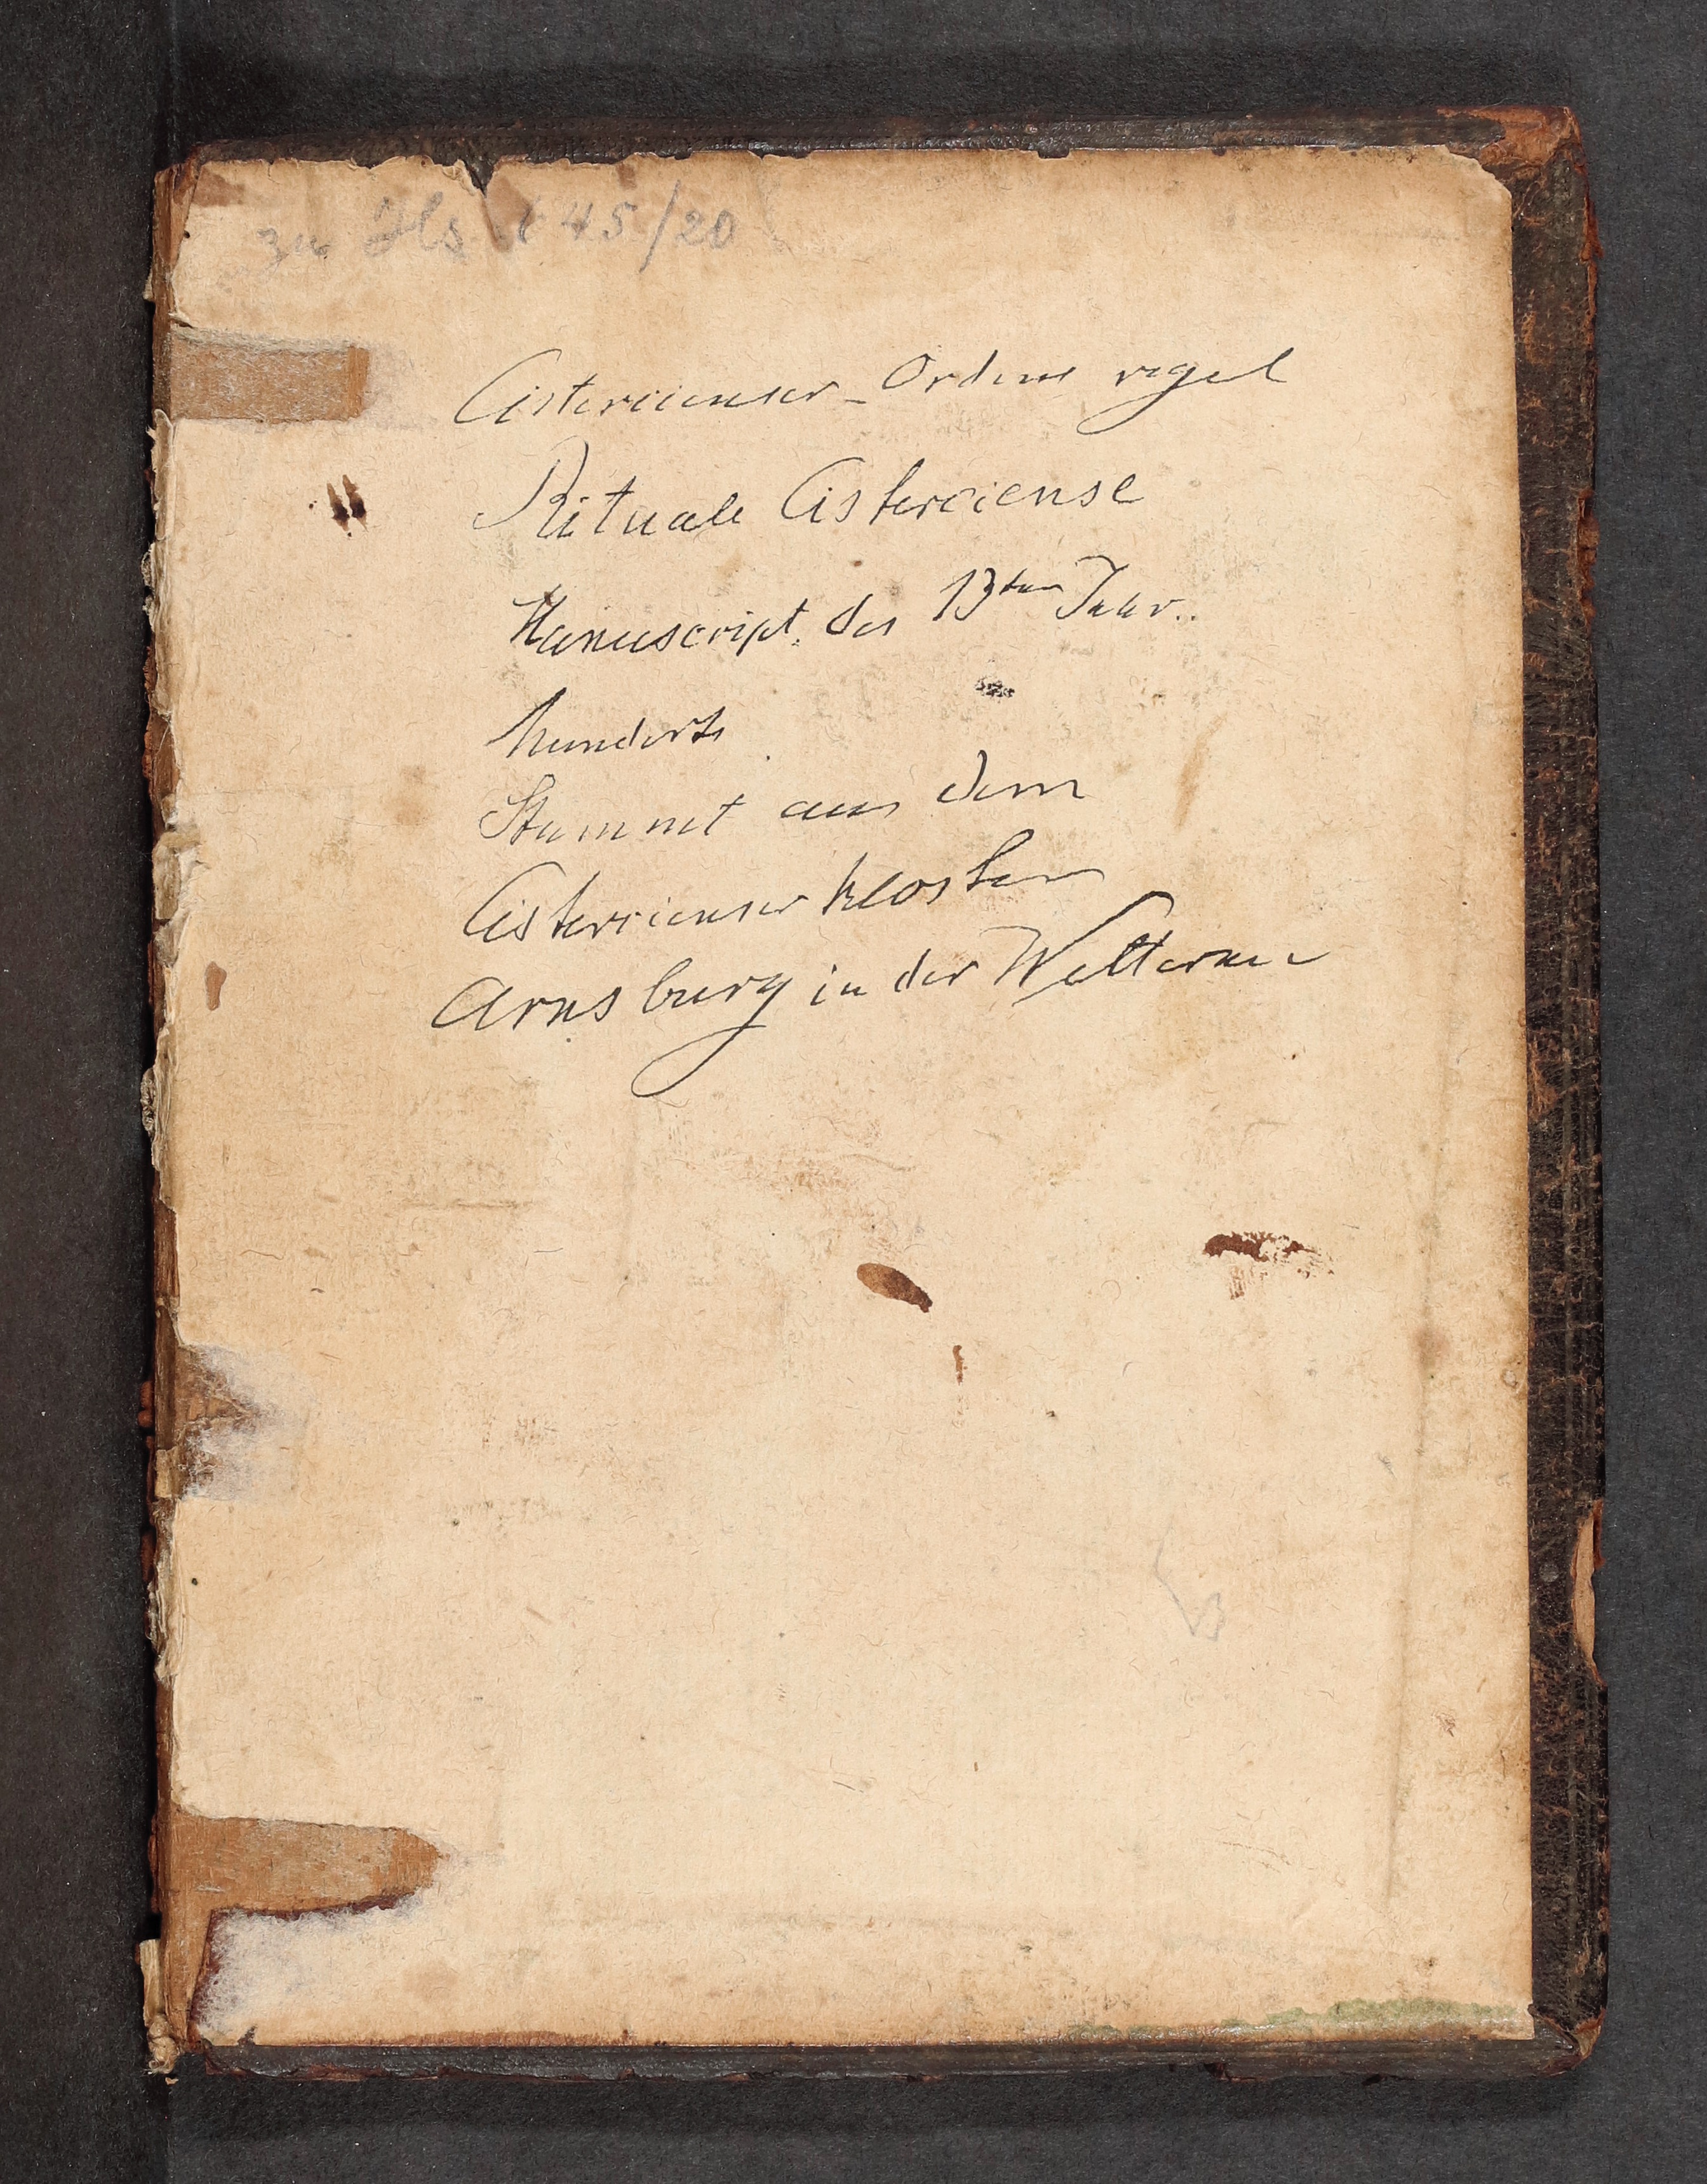 zu Hs 45/20
Cistercienser-Ordens regel
Rituale Cisterciense
Manuscript des 13ten Jahr..
hunderts
Stammt aus dem
Cistercienser kloster
Arnsburg in der Wetterau